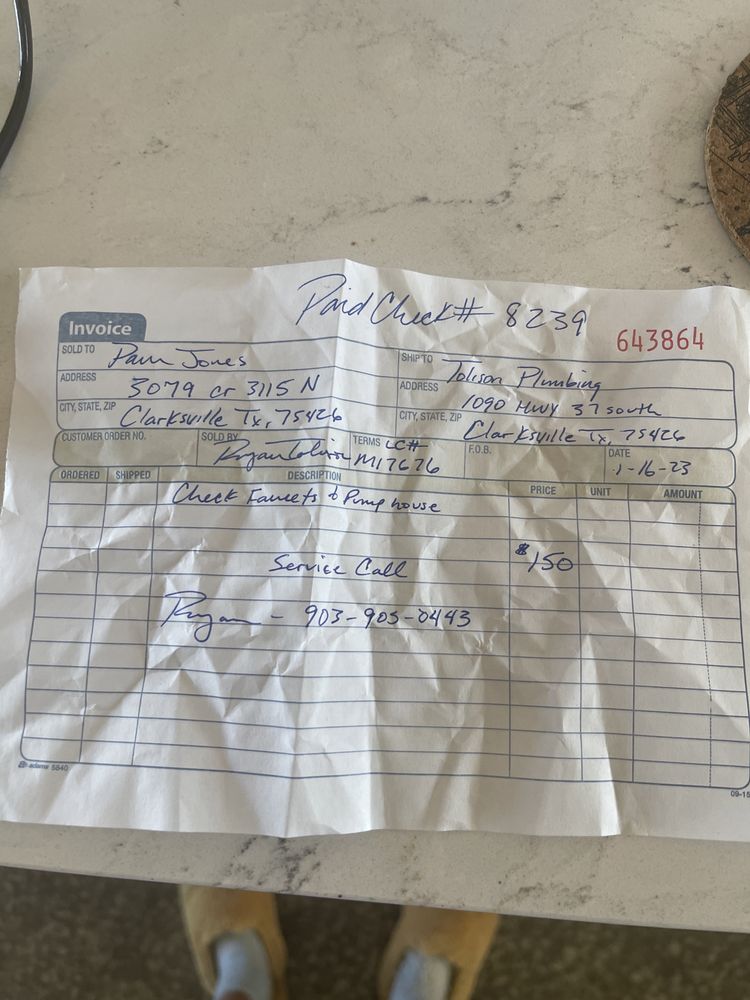 Paid Check# 8239
Invoice
643864
SOLD TO Pam Jones
SHIP TO Tolison Plumbing
ADDRESS 3079 cr 3115 N
ADDRESS 1090 HWY 37 south
CITY, STATE, ZIP Clarksville Tx, 75426
CITY, STATE, ZIP Clarksville Tx, 75426
CUSTOMER ORDER NO. SOLD BY Ryan Tolison TERMS LC# M17676 F.O.B. DATE 1-16-23
ORDERED SHIPPED DESCRIPTION PRICE UNIT AMOUNT
Check Faucets & Pump house
Service Call $150
Ryan - 903-905-0443
adams 5840
09-15